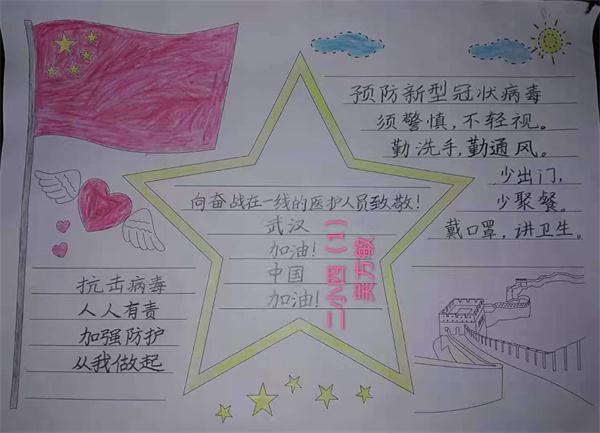 预防新型冠状病毒
须警慎，不轻视。
勤洗手，勤通风。
少出门，
少聚餐。
戴口罩，讲卫生。
向奋战在一线的医护人员致敬！
武汉
加油！
中国
加油！
二小四（1）
吴方敏
抗击病毒
人人有责
加强防护
从我做起